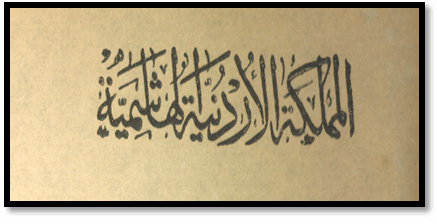 المملكة الأردنية الهاشمية